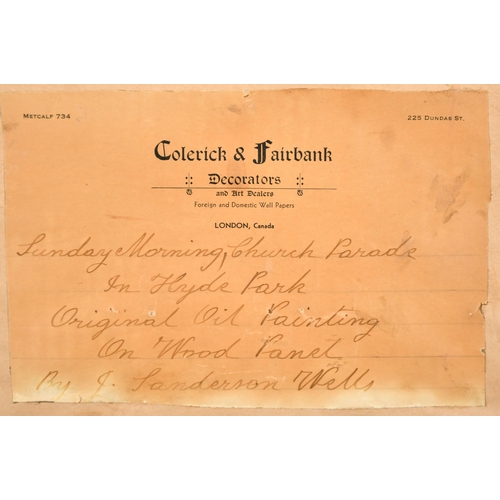 METCALF 734
225 DUNDAS ST.
Colerick & Fairbank
Decorators
and Art Dealers
Foreign and Domestic Wall Papers
LONDON, Canada
Sunday Morning, Church Parade
In Hyde Park
Original Oil Painting
On Wood Panel
By J. Sanderson Wells